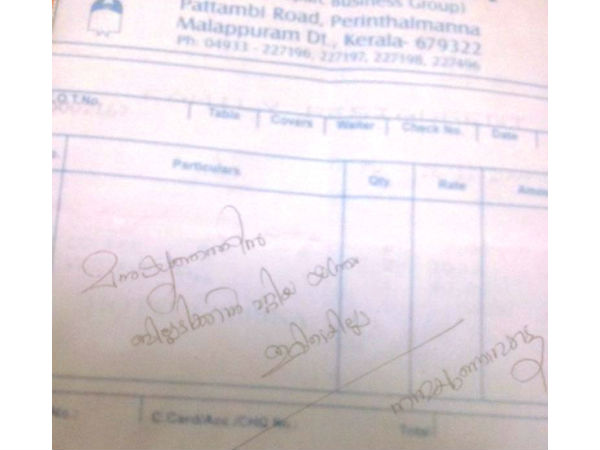 Business Group)
Pattambi Road, Perinthalmanna
Malappuram Dt., Kerala- 679322
Ph: 04933 - 227196, 227197, 227198, 227496
O.T.No. Table Covers Waiter Check No. Date
Particulars Qty Rate
മനുഷ്യത്വത്തിന്
ബില്ലടിക്കാൻ പറ്റിയ യന്ത്രം
ഇവിടെയില്ല
നന്മയുണ്ടാവട്ടെ
C.Card/Acc./CHQ No.: Total